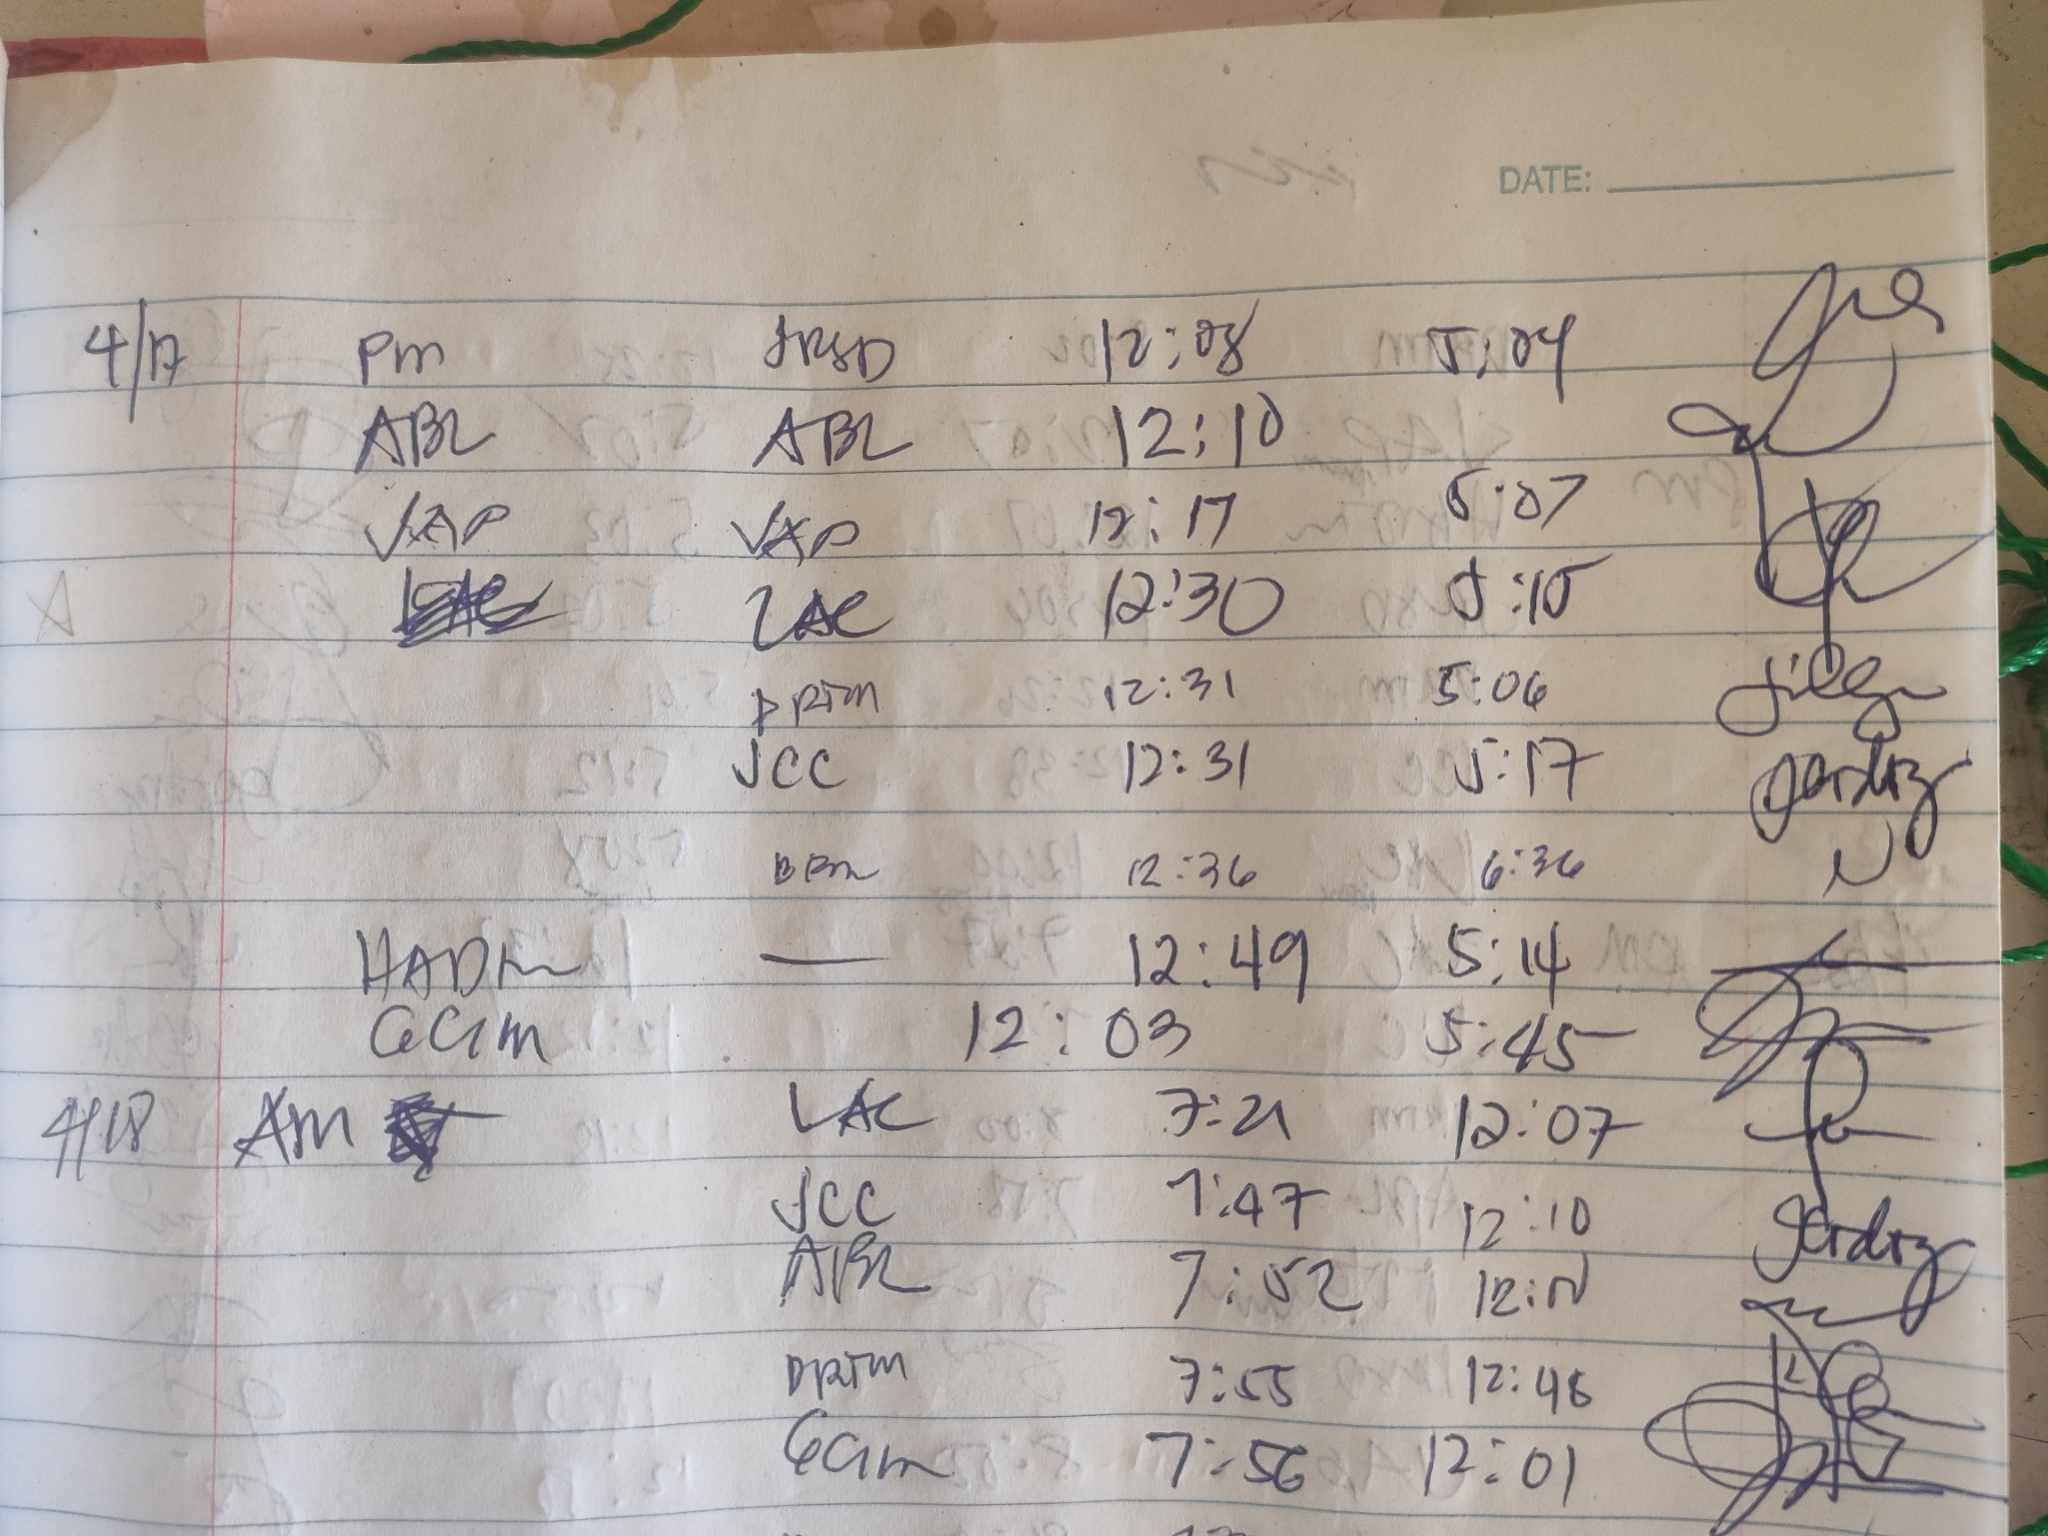 DATE:
4/17 Pm JRSD 12:08 5:04
ABL ABL 12:10
VAP VAP 12:17 5:07
LAC 12:30 5:15
DRTM 12:31 5:06
JCC 12:31 5:17
BBM 12:36 6:36
HADM — 12:49 5:14
GGM 12:03 5:45
4/18 AM LAC 7:21 12:07
JCC 7:47 12:10
ABL 7:52 12:11
DRTM 7:55 12:48
GGM 7:56 12:01